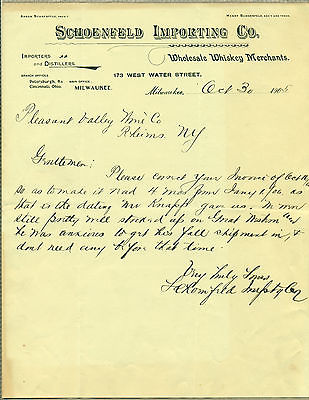 SCHOENFELD IMPORTING CO.
IMPORTERS
and DISTILLERS
Wholesale Whiskey Merchants.
BRANCH OFFICES
Petersburg, Ky.
Cincinnati, Ohio.
MAIN OFFICE
MILWAUKEE.
173 WEST WATER STREET.
Milwaukee, Oct 30 1905
Pleasant Valley Wine Co
Rheims NY
Gentlemen:
Please correct your Invoice of Oct
so as to make it read 4 mos from Jany 1, 06, as
that is the dating Mr Knapp gave us.
still pretty well stocked up on Great Western and
he was anxious to get this fall shipment in, &
dont need any before that time.
Very truly Yours,
Schoenfeld Importg Co